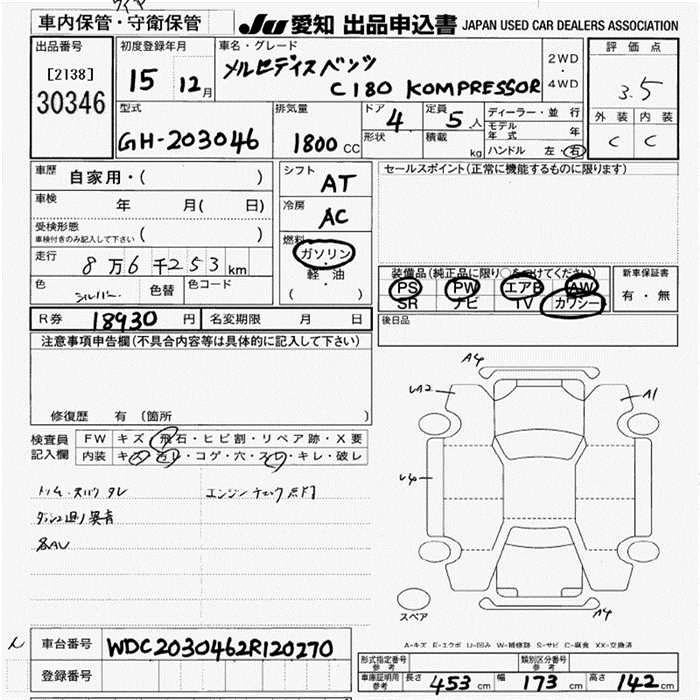 車内保管・守衛保管
JU 愛知 出品申込書 JAPAN USED CAR DEALERS ASSOCIATION
出品番号
[2138]
30346
初度登録年月
15 12月
車名・グレード
メルセデスベンツ
C180 KOMPRESSOR
2WD
・
4WD
評価点
3.5
外装 内装
C C
型式
GH-203046
排気量
1800 CC
ドア 4
形状
定員 5 人
積載 kg
ディーラー・並行
モデル年式 年
ハンドル 左・右
車歴 自家用・( )
車検 年 月( 日)
受検形態
車検付きのみ記入して下さい ( )
走行 8万6千253km
色 シルバー 色替 色コード
シフト AT
冷房 AC
燃料
ガソリン
・
軽油
( )
セールスポイント(正常に機能するものに限ります)
装備品(純正品に限り○をつけてください)
PS PW エアB AW
SR ナビ TV カワシー
新車保証書
有・無
後日品
R券 18930 円 名変期限 月 日
注意事項申告欄(不具合内容等は具体的に記入して下さい)
修復歴 有 (箇所 )
検査員記入欄
FW キズ・飛石・ヒビ割・リペア跡・X要
内装 キズ・汚レ・コゲ・穴・スレ・キレ・破レ
エンジンチェック点灯
A4
A1
A4
スペア
A-キズ E-エクボ U-凹み W-補修跡 S-サビ C-腐食 XX-交換済
車台番号 WDC2030462R120270
登録番号
形式指定番号 参考
類別区分番号 参考
車庫証明用 参考 長さ 453 cm 幅 173 cm 高さ 142 cm